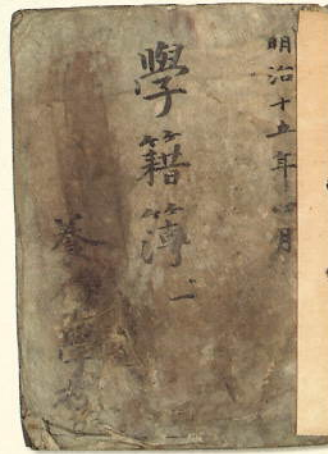 明治十五年四月
學籍簿
一
養